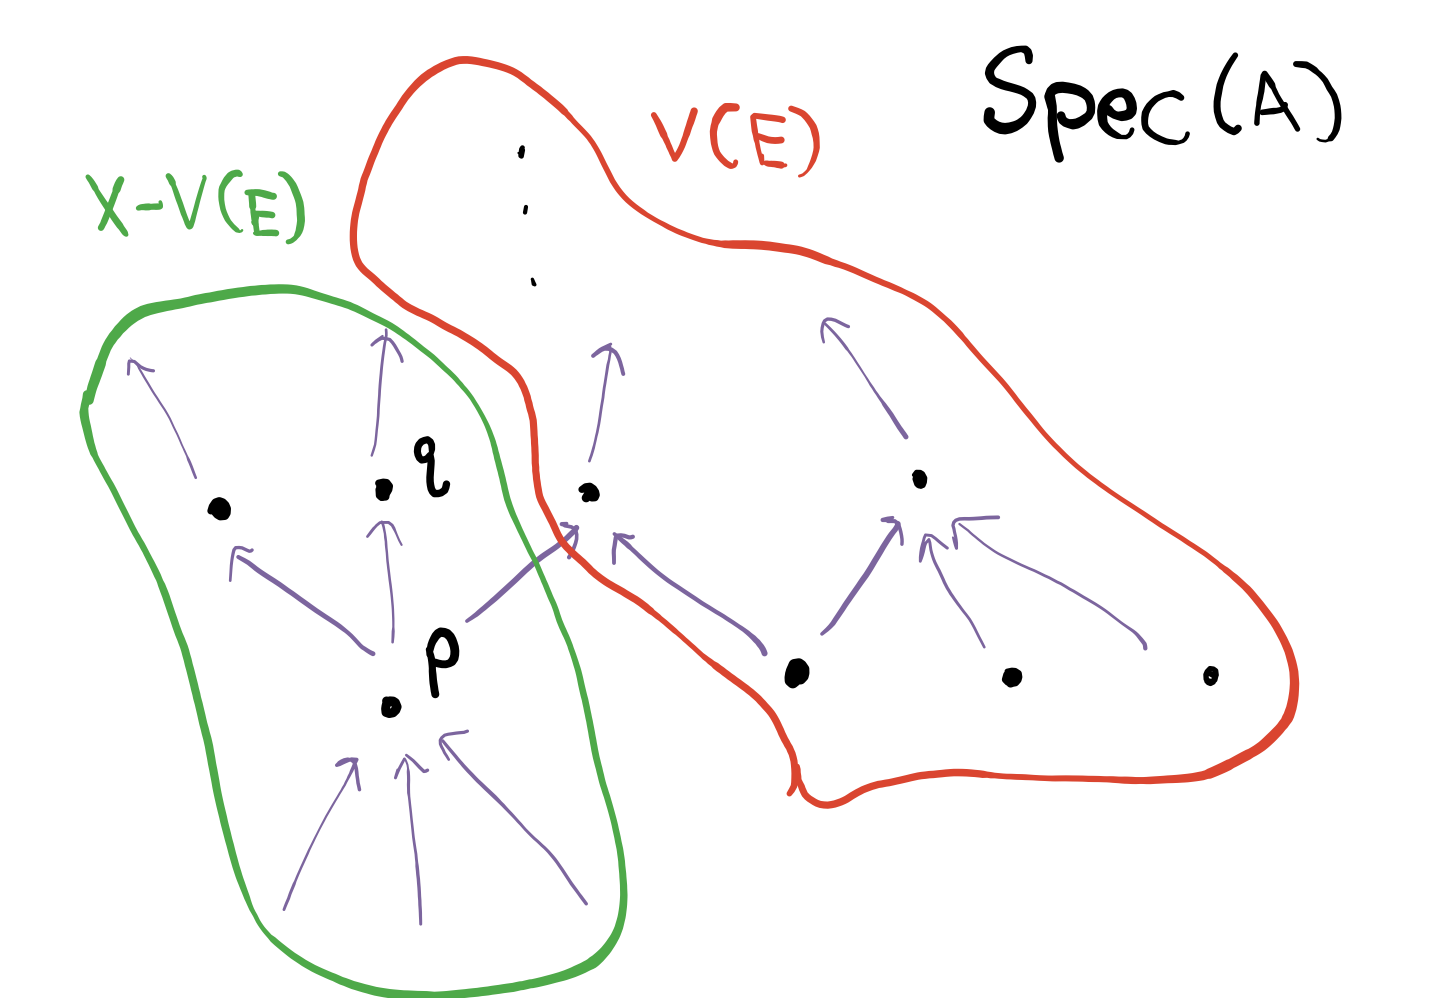 Spec(A)
V(E)
X-V(E)
q
p